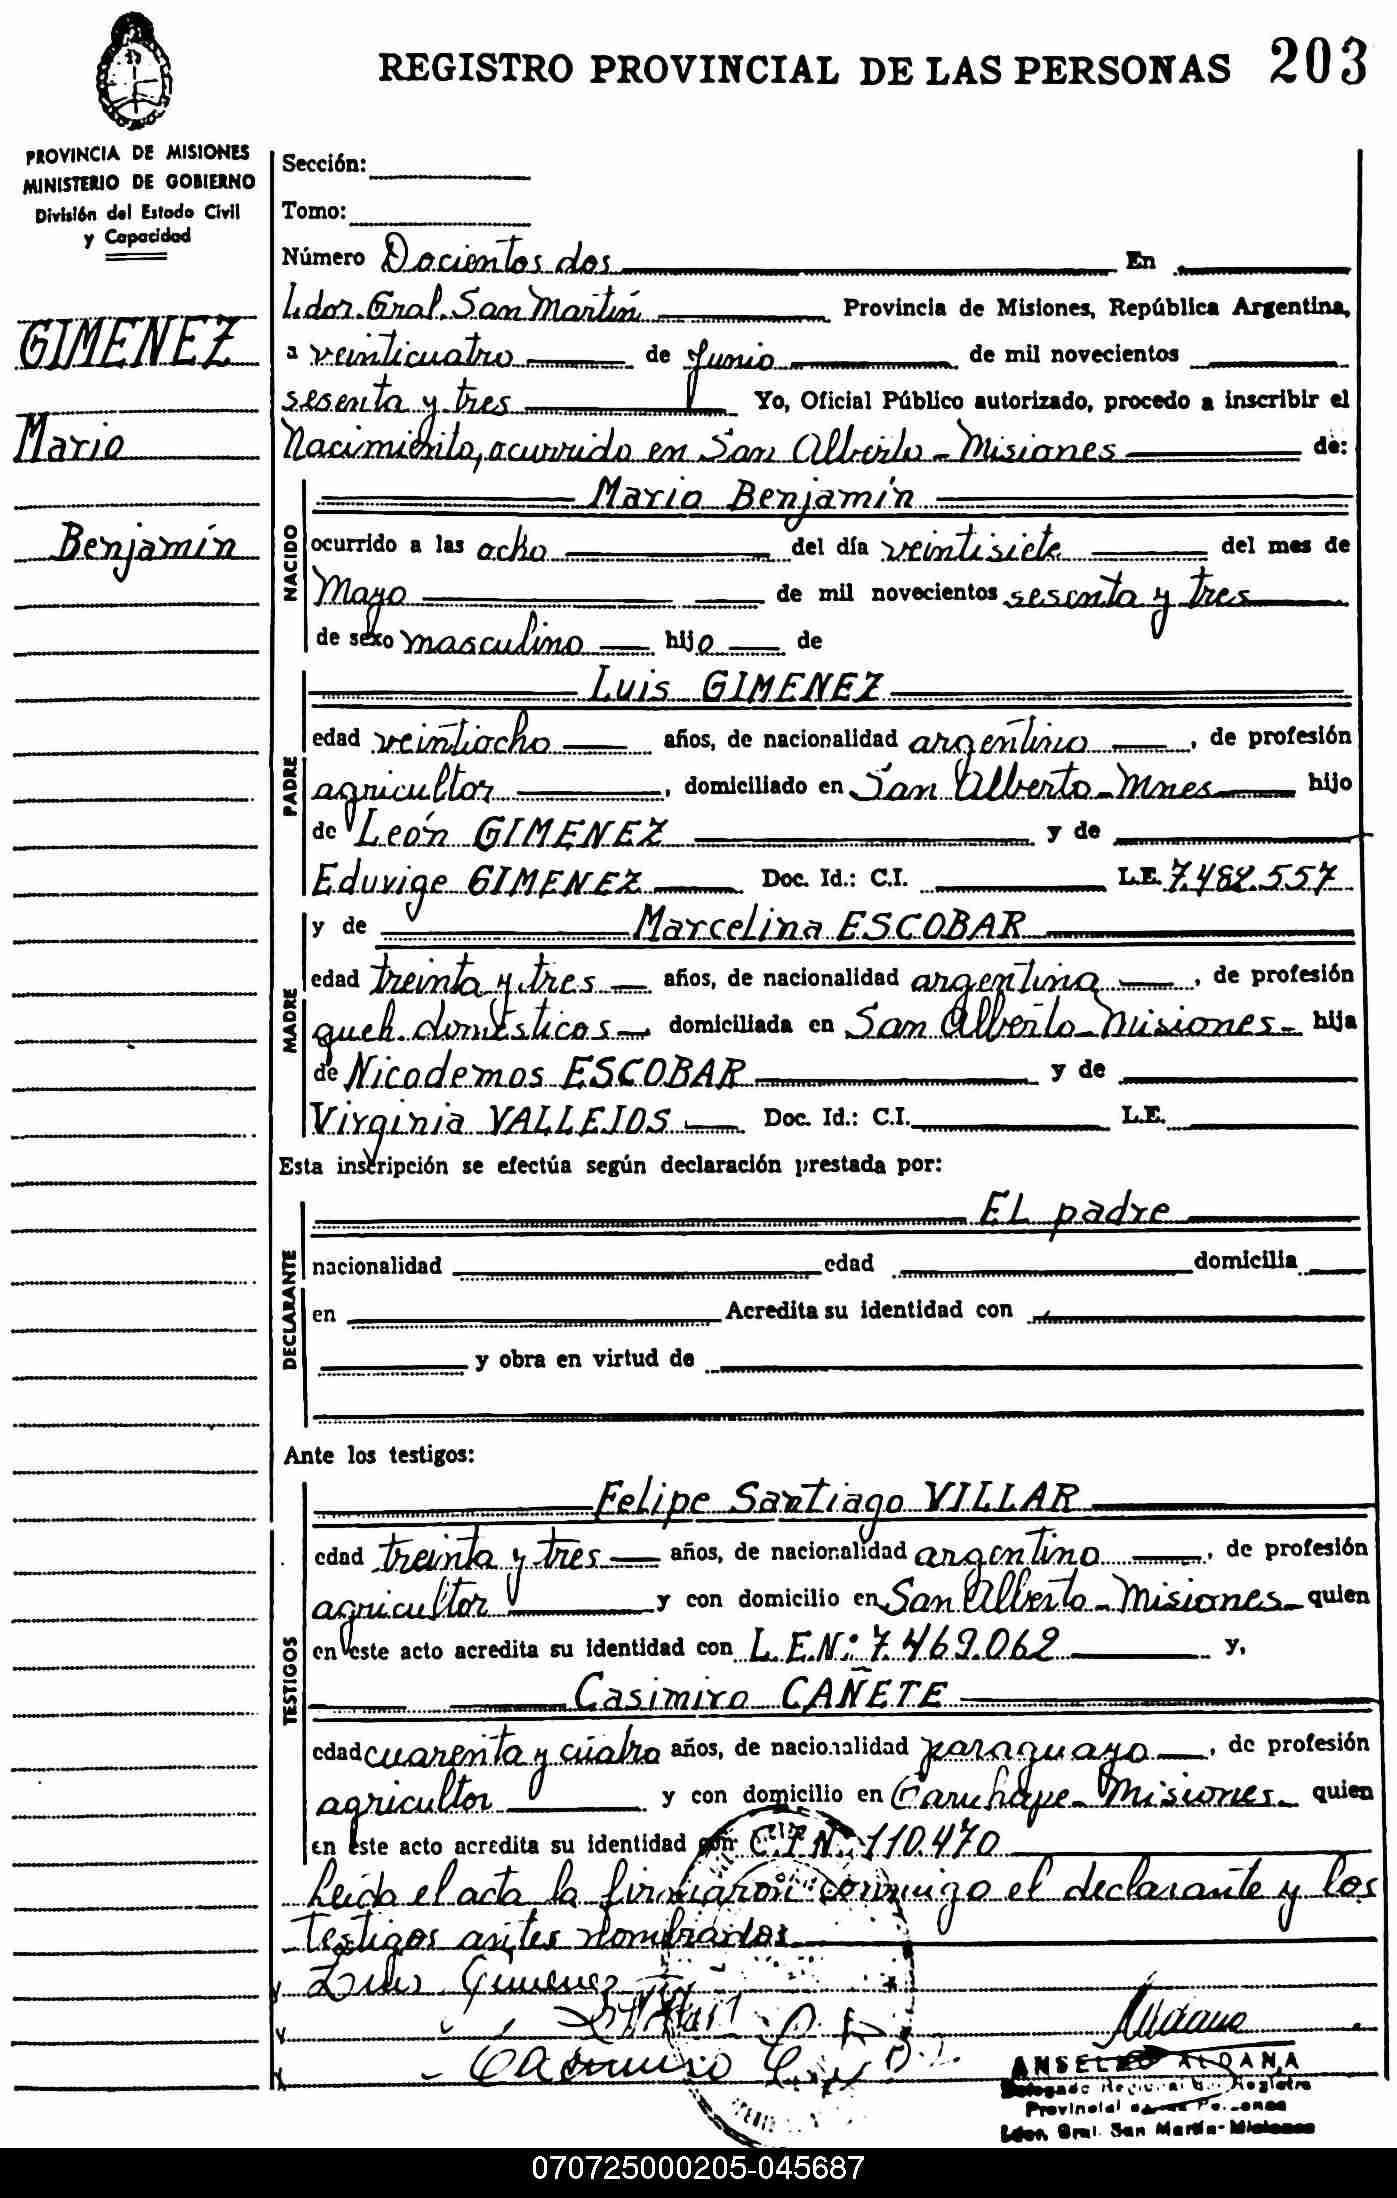 REGISTRO PROVINCIAL DE LAS PERSONAS 203
PROVINCIA DE MISIONES
MINISTERIO DE GOBIERNO
División del Estado Civil
y Capacidad
GIMENEZ
Mario
Benjamín
Sección:
Tomo:
Número Docientos dos En
Ldor. Gral. San Martín Provincia de Misiones, República Argentina,
a veinticuatro de Junio de mil novecientos
sesenta y tres Yo, Oficial Público autorizado, procedo a inscribir el
Nacimiento, ocurrido en San Alberto - Misiones de:
NACIDO
Mario Benjamín
ocurrido a las ocho del día veintisiete del mes de
Mayo de mil novecientos sesenta y tres
de sexo masculino hijo de
PADRE
Luis GIMENEZ
edad veintiocho años, de nacionalidad argentino, de profesión
agricultor, domiciliado en San Alberto - Mnes hijo
de León GIMENEZ y de
Eduvige GIMENEZ Doc. Id.: C.I. L.E. 7.482.557
MADRE
y de Marcelina ESCOBAR
edad treinta y tres años, de nacionalidad argentina, de profesión
queh. domésticos domiciliada en San Alberto - Misiones - hija
de Nicodemos ESCOBAR y de
Virginia VALLEJOS Doc. Id.: C.I. L.E.
Esta inscripción se efectúa según declaración prestada por:
DECLARANTE
EL padre
nacionalidad edad domicilia
en Acredita su identidad con
y obra en virtud de
Ante los testigos:
TESTIGOS
Felipe Santiago VILLAR
edad treinta y tres años, de nacionalidad argentino, de profesión
agricultor y con domicilio en San Alberto - Misiones - quien
en este acto acredita su identidad con L.E.N: 7.469.062 y,
Casimiro CAÑETE
edad cuarenta y cuatro años, de nacionalidad paraguayo, de profesión
agricultor y con domicilio en Garuhape - Misiones - quien
en este acto acredita su identidad con C.I.N. 110.470
Leída el acta la firmaron conmigo el declarante y los
testigos antes nombrados
Luis Gimenez
Casimiro
Aldana
ANSELMO ALDANA
Delegado Regional del Registro
Provincial de las Personas
Ldor. Gral. San Martín - Misiones
070725000205-045687